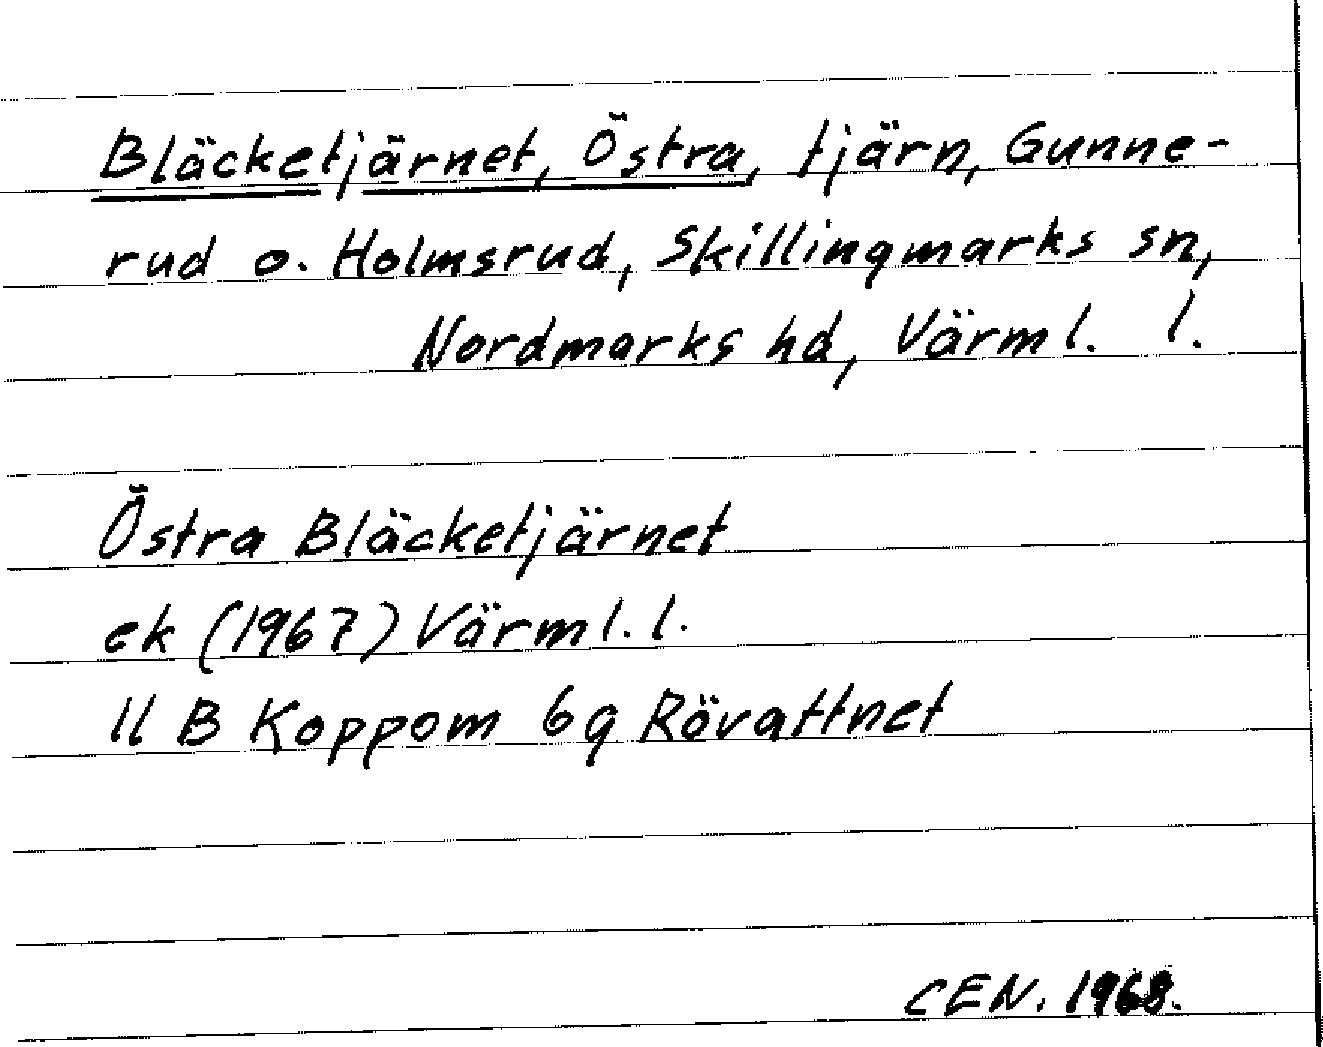 Bläcketjärnet, Östra, tjärn, Gunne-
rud o. Holmsrud, Skillingmarks sn,
Nordmarks hd, Värml. l.
Östra Bläcketjärnet
ek (1967) Värml. l.
11 B Koppom 6g Rövattnet
CEN. 1968.